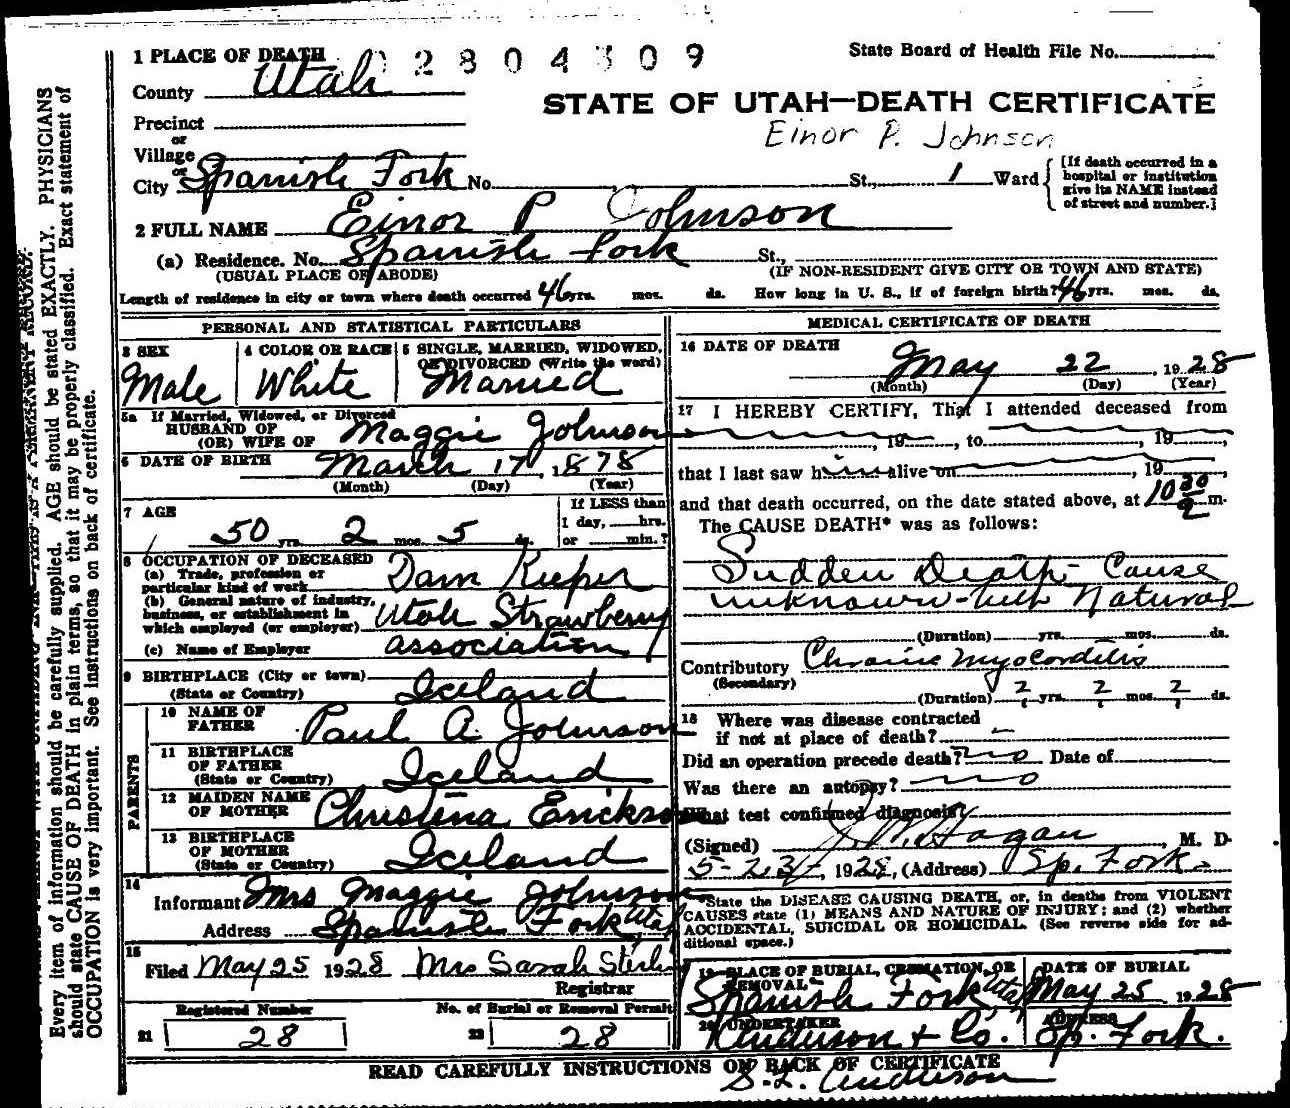 1 PLACE OF DEATH 2804309 State Board of Health File No.
County Utah
STATE OF UTAH—DEATH CERTIFICATE
Precinct
Einor P. Johnson
or
Village
or
City Spanish Fork No. St., 1 Ward
[If death occurred in a
hospital or institution
give its NAME instead
of street and number.]
2 FULL NAME Einor P Johnson
(a) Residence. No. Spanish Fork St.,
(USUAL PLACE OF ABODE) (IF NON-RESIDENT GIVE CITY OR TOWN AND STATE)
Length of residence in city or town where death occurred 46 yrs. mos. ds. How long in U. S., if of foreign birth? 46 yrs. mos. ds.
PERSONAL AND STATISTICAL PARTICULARS
3 SEX Male
4 COLOR OR RACE White
5 SINGLE, MARRIED, WIDOWED,
OR DIVORCED (Write the word)
Married
5a If Married, Widowed, or Divorced
HUSBAND OF
(OR) WIFE OF Maggie Johnson
6 DATE OF BIRTH March 17, 1878
(Month) (Day) (Year)
7 AGE
50 yrs. 2 mos. 5 ds.
If LESS than
1 day, hrs.
or min.?
8 OCCUPATION OF DECEASED
(a) Trade, profession or
particular kind of work Dam Keeper
(b) General nature of industry,
business, or establishment in
which employed (or employer) Utah Strawberry
(c) Name of Employer association
9 BIRTHPLACE (City or town)
(State or Country) Iceland
PARENTS
10 NAME OF
FATHER Paul A. Johnson
11 BIRTHPLACE
OF FATHER
(State or Country) Iceland
12 MAIDEN NAME
OF MOTHER Christena Erickson
13 BIRTHPLACE
OF MOTHER
(State or Country) Iceland
14
Informant Mrs Maggie Johnson
Address Spanish Fork Utah
15
Filed May 25 1928 Mrs Sarah Sterling
Registrar
Registered Number No. of Burial or Removal Permit
21 28 22 28
MEDICAL CERTIFICATE OF DEATH
16 DATE OF DEATH
May 22, 1928
(Month) (Day) (Year)
17 I HEREBY CERTIFY, That I attended deceased from
, 19 , to , 19 ,
that I last saw him alive on , 19 ,
and that death occurred, on the date stated above, at 10 30 a m.
The CAUSE DEATH* was as follows:
Sudden Death - Cause
unknown - but Natural
(Duration) yrs. mos. ds.
Contributory Chronic Myocarditis
(Secondary)
(Duration) ? yrs. ? mos. ? ds.
18 Where was disease contracted
if not at place of death?
Did an operation precede death? no Date of
Was there an autopsy? no
What test confirmed diagnosis?
(Signed) Hagan, M. D.
5-23-, 1928, (Address) Sp. Fork.
*State the DISEASE CAUSING DEATH, or, in deaths from VIOLENT
CAUSES state (1) MEANS AND NATURE OF INJURY; and (2) whether
ACCIDENTAL, SUICIDAL OR HOMICIDAL. (See reverse side for ad-
ditional space.)
19 PLACE OF BURIAL, CREMATION, OR
REMOVAL
Spanish Fork Utah
DATE OF BURIAL
May 25, 1928
20 UNDERTAKER
Anderson & Co.
ADDRESS
Sp. Fork.
READ CAREFULLY INSTRUCTIONS ON BACK OF CERTIFICATE
S. L. Anderson
Every item of information should be carefully supplied. AGE should be stated EXACTLY. PHYSICIANS
should state CAUSE OF DEATH in plain terms, so that it may be properly classified. Exact statement of
OCCUPATION is very important. See instructions on back of certificate.